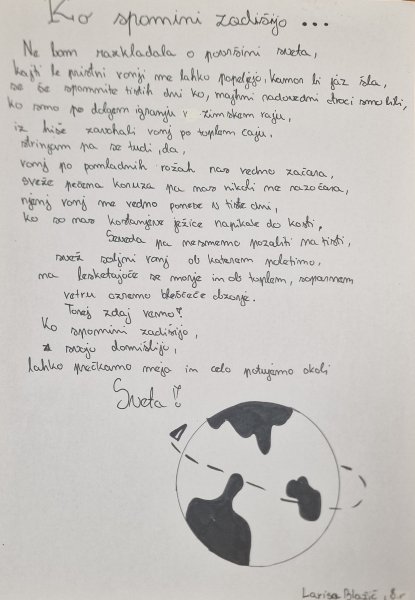 Ko spomini zadišijo ...
Ne bom razkladala o površini sveta,
kajti le pristni vonji me lahko popeljejo, kamor bi jaz šla,
se še spomnite tistih dni ko, majhni radovedni otroci smo bili,
ko smo po dolgem igranju v zimskem raju,
iz hiše zavohali vonj po toplem čaju.
Strinjam pa se tudi, da,
vonj po pomladnih rožah nas vedno začara,
sveže pečena koruza pa nas nikoli ne razočara,
njenj vonj me vedno ponese v tiste dni,
ko so nas kostanjeve ježice napikale do kosti,
Seveda pa ne smemo pozabiti na tisti,
svež soljni vonj ob katerem poletimo,
na lesketajoče se morje in ob toplem, soparnem
vetru oznemo bleščeče obzorje.
Torej zdaj vemo?
Ko spomini zadišijo,
z svojo domišlijo,
lahko prečkamo meja in celo potujemo okoli
Sveta!
Larisa Blažič, 8.r